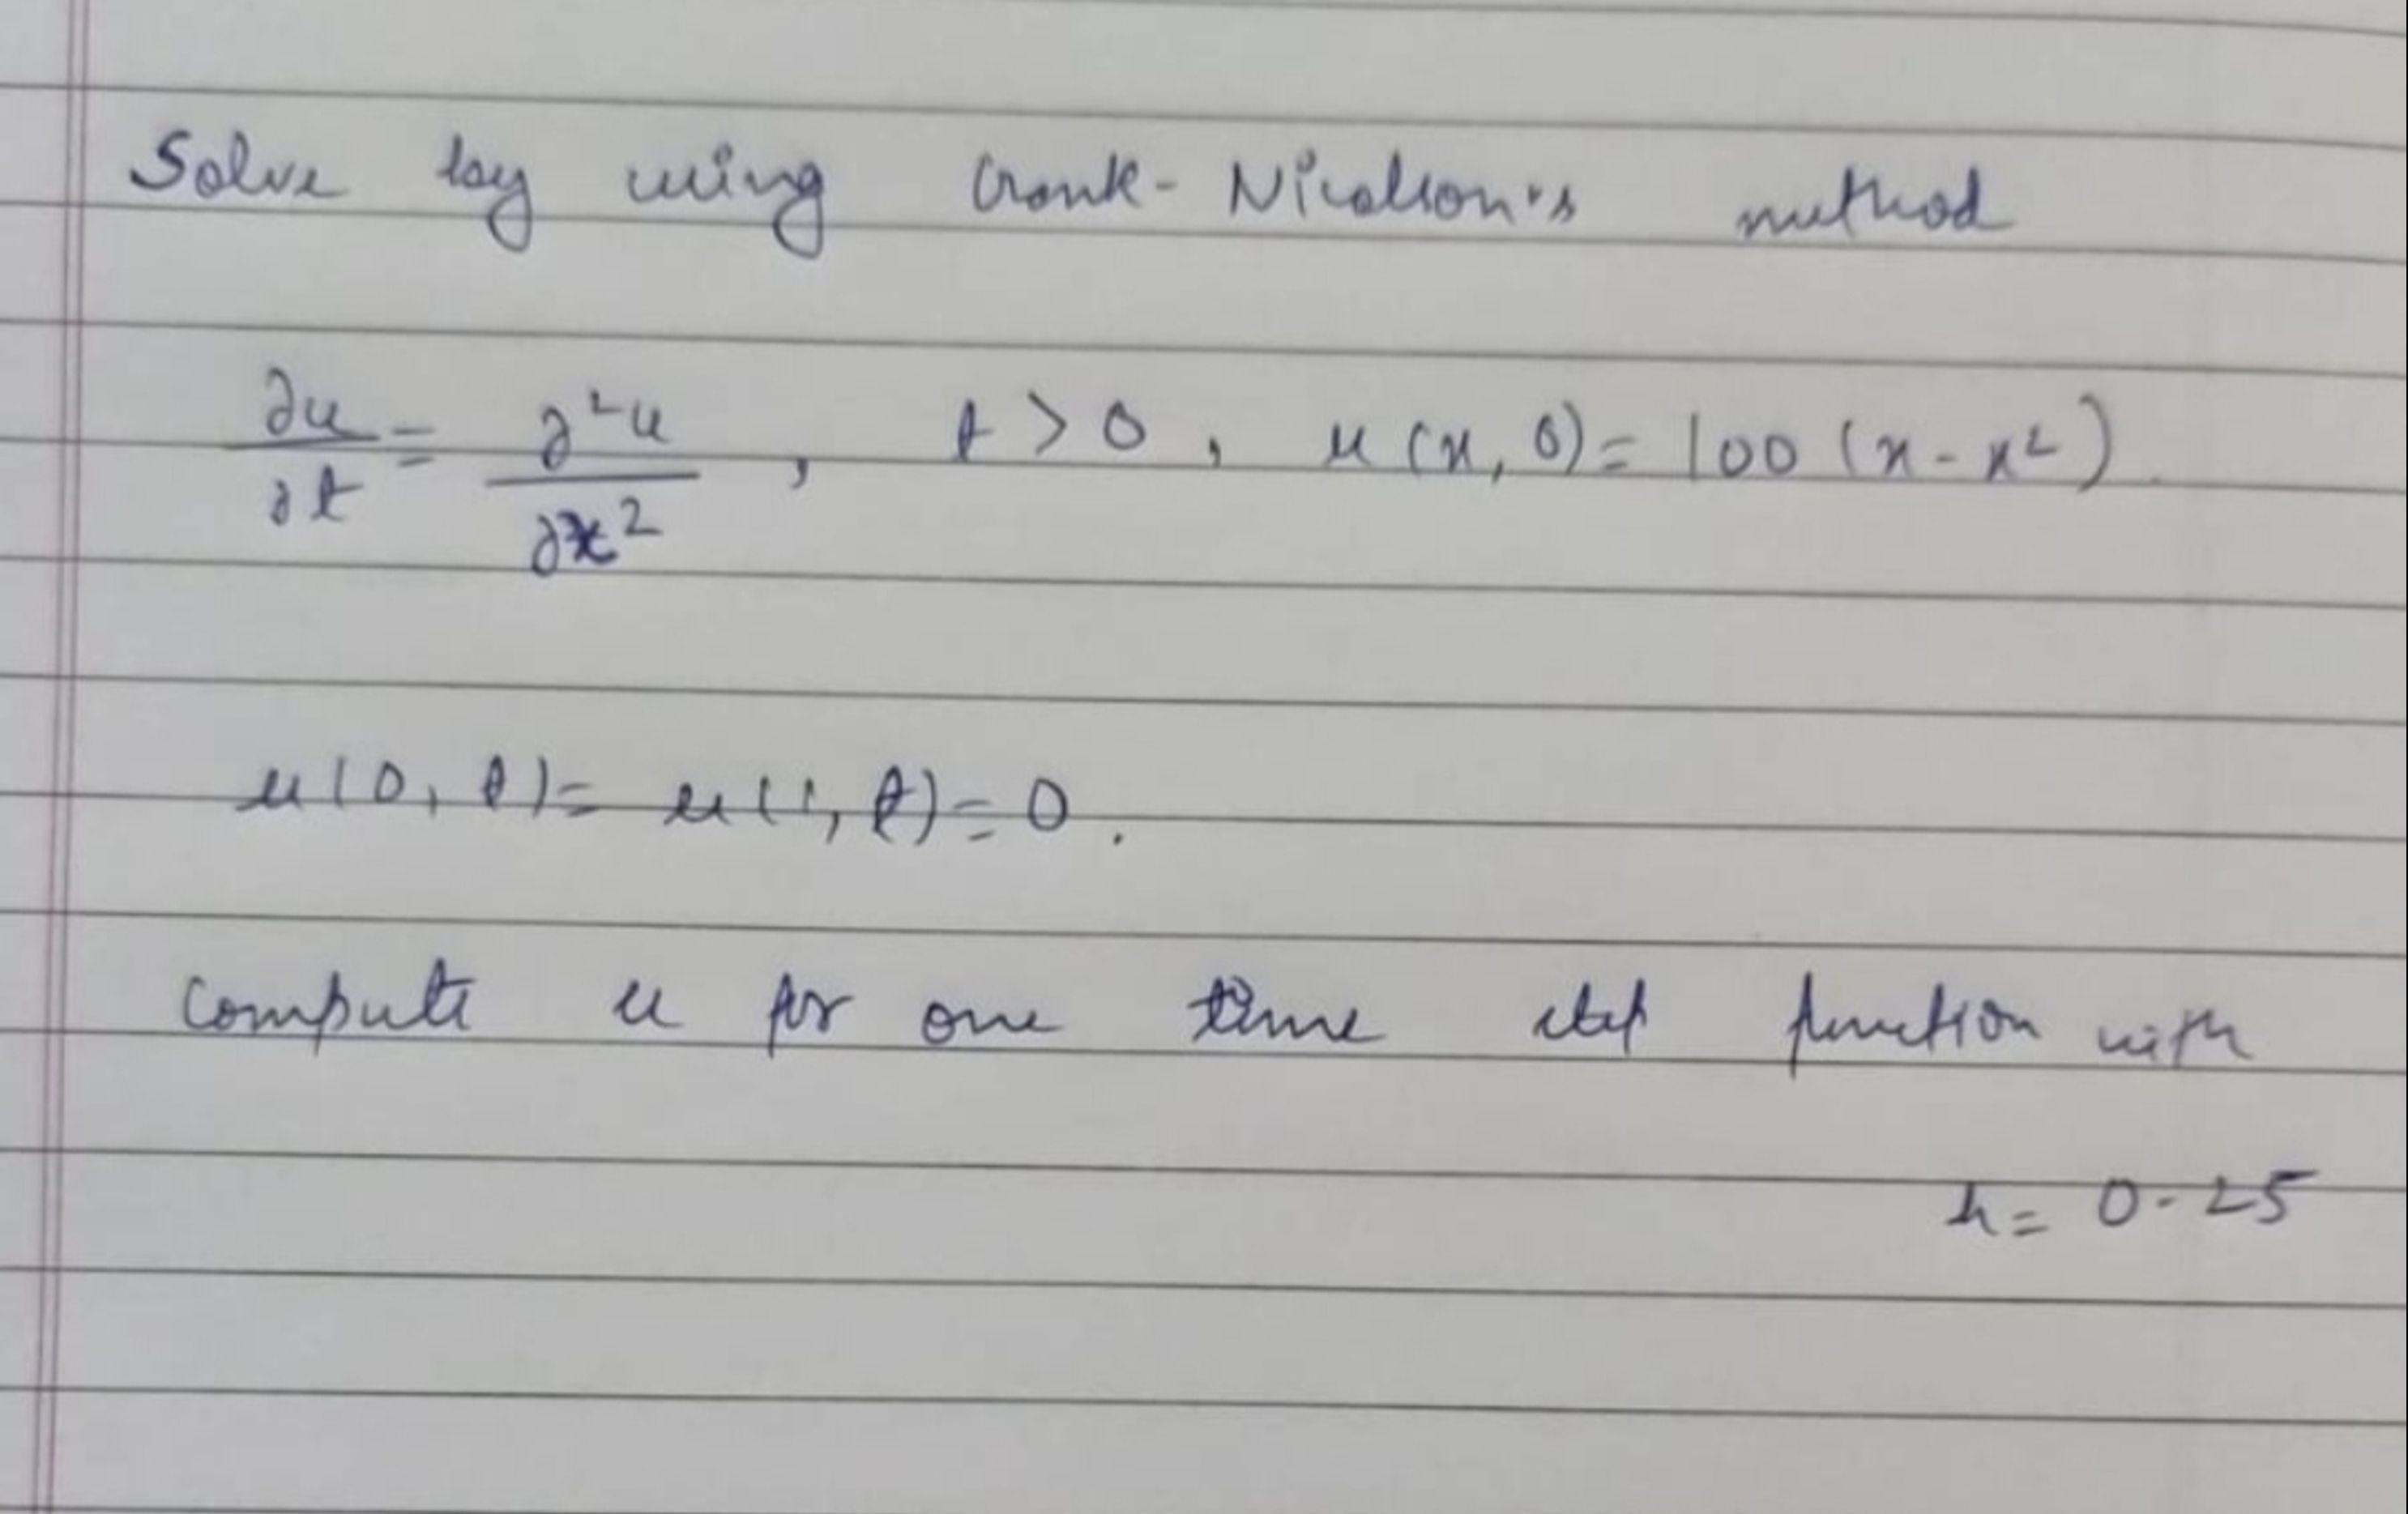 Solve by using Crank-Nicolson's method
∂u/∂t = ∂²u/∂x² , t > 0 , u(x, 0) = 100 (x - x²)
u(0, t) = u(1, t) = 0.
Compute u for one time step function with
h = 0.25